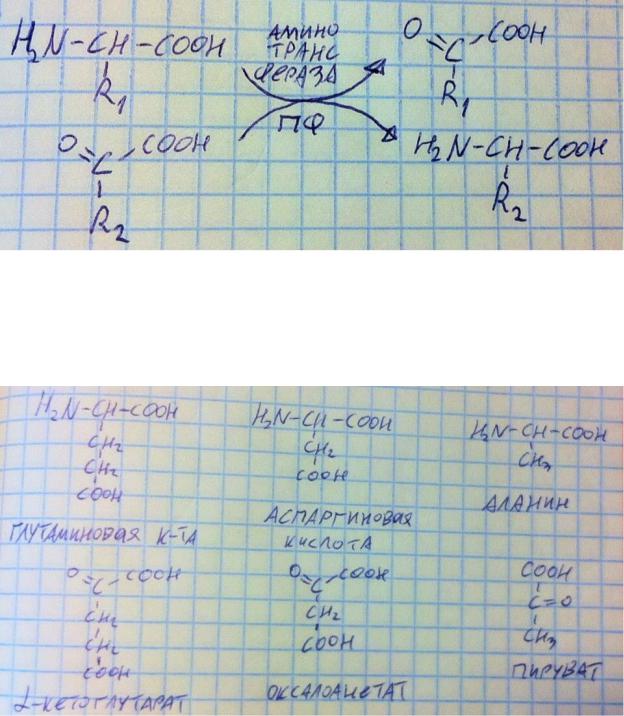 H₂N-CH-COOH
R₁
АМИНО
ТРАНС
ФЕРАЗА
O=C-COOH
R₁
O=C-COOH
R₂
ПФ
H₂N-CH-COOH
R₂
H₂N-CH-COOH
CH₂
CH₂
COOH
ГЛУТАМИНОВАЯ К-ТА
H₂N-CH-COOH
CH₂
COOH
АСПАРГИНОВАЯ
КИСЛОТА
H₂N-CH-COOH
CH₃
АЛАНИН
O=C-COOH
CH₂
CH₂
COOH
α-КЕТОГЛУТАРАТ
O=C-COOH
CH₂
COOH
ОКСАЛОАЦЕТАТ
COOH
C=O
CH₃
ПИРУВАТ